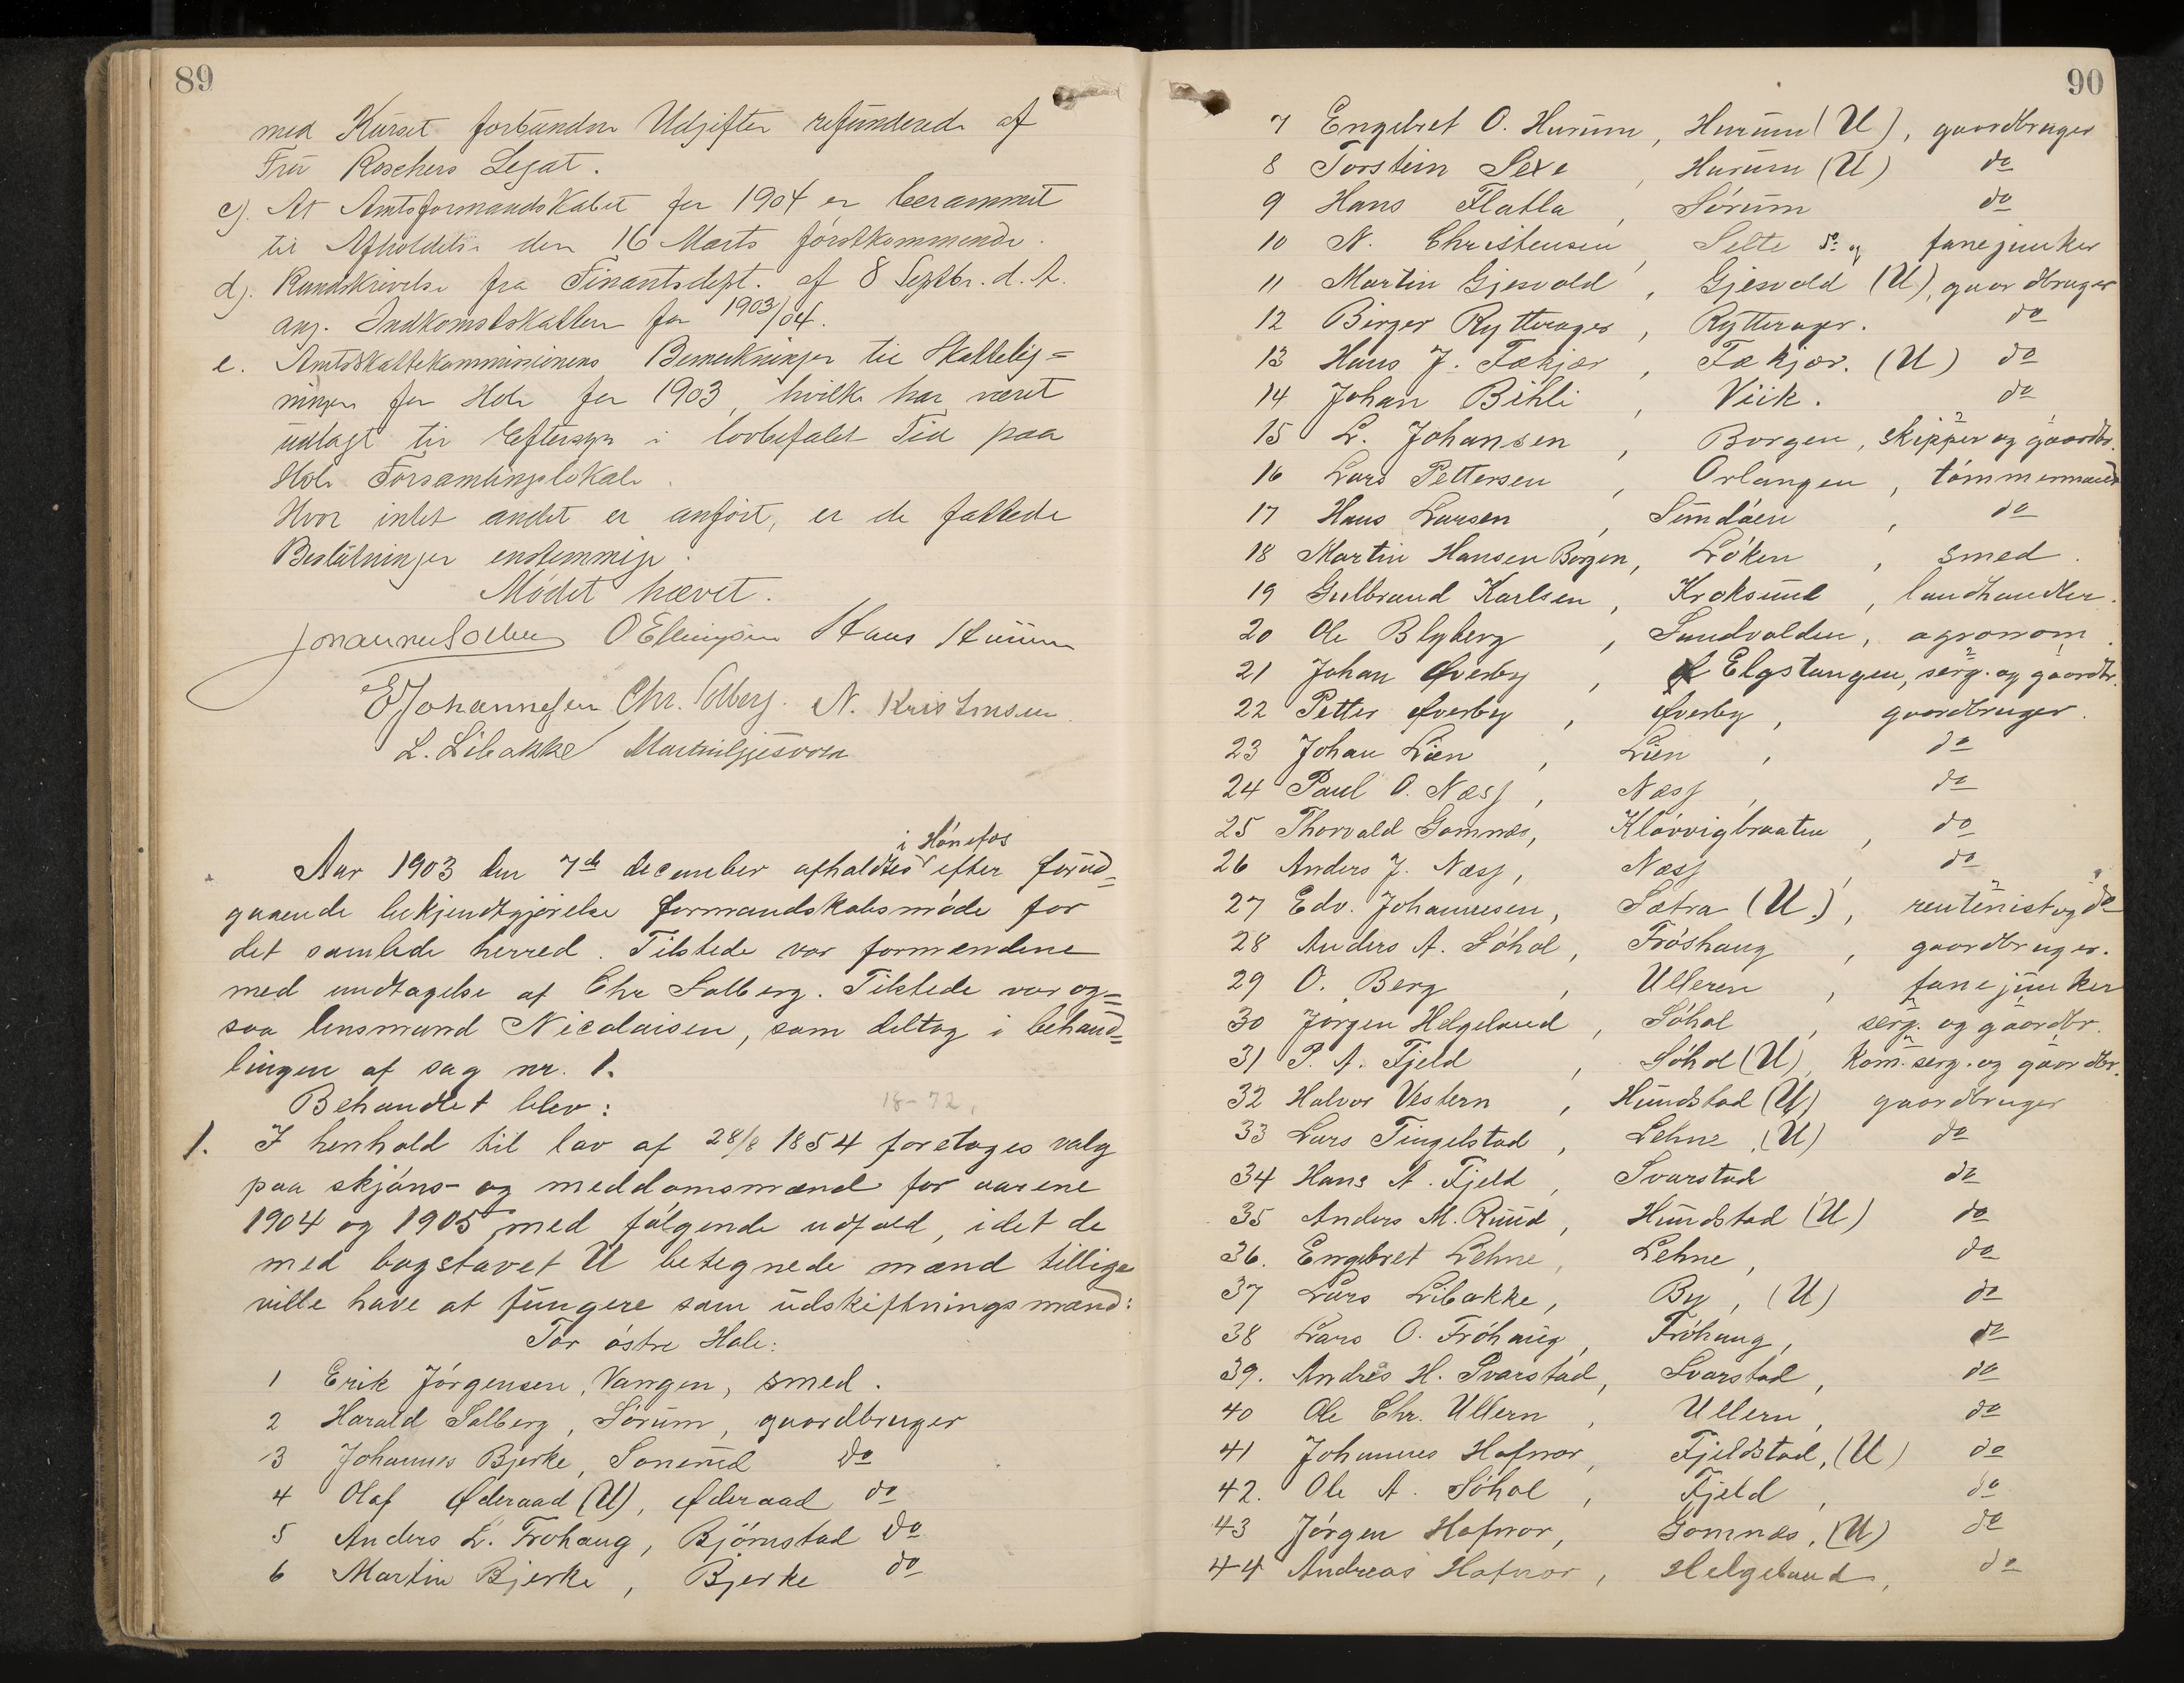 89
med Kurset forbundne Udgifter refunderede af
Fru Roschers Legat.
c). At Amtsformandskabet for 1904 er berammet
til Afholdelse den 16 Marts førstkommende.
d). Rundskrivelse fra Finantsdept. af 8 Septbr. d. A.
ang. Indkomstskatten for 1903/04.
e. Amtsskattekommissionens Bemerkninger til Skattelig=
ningen for Hole for 1903, hvilke har været
udlagt til Eftersyn i lovbefalet Tid paa
Hole Forsamlingslokale.
Hvor intet andet er anført, er de fattede
Beslutninger enstemmige.
Mødet hævet.
Johannes Solberg O Ellingsen Hans Hurum
E Johannesen Chr. Solberg. N. Kristensen
L. Libakke Martin Gjesvold
i Hønefos
Aar 1903 den 7de december afholdtes efter forud=
gaaende bekjendtgjørelse formandskabsmøde for
det samlede herred. Tilstede var formændene
med undtagelse af Chr Solberg. Tilstede var og=
saa lensmand Nicolaisen, som deltog i behand=
lingen af sag nr. 1.
Behandlet blev:
18-72,
1. I henhold til lov af 28/8 1854 foretages valg
paa skjøns- og meddomsmænd for aarene
1904 og 1905 med følgende udfald, idet de
med bogstavet U betegnede mænd tillige
ville have at fungere som udskiftningsmænd:
For østre Hole:
1 Erik Jørgensen, Vangen, smed.
2 Harald Solberg, Sørum, gaardbruger
3 Johannes Bjerke, Sonerud do
4 Olaf Øderaad (U), Øderaad do
5 Anders L. Frohaug, Bjørnstad do
6 Martin Bjerke, Bjerke do
90
7 Engebret O. Hurum, Hurum (U), gaardbruger
8 Torstein Sexe, Hurum (U) do
9 Hans Flatla, Sørum do
10 N. Christensen, Selte do og fanejunker
11 Martin Gjesvold, Gjesvold (U), gaardbruger
12 Birger Rytterager, Rytterager. do
13 Hans J. Fækjær, Fækjær. (U) do
14 Johan Bihli, Viik. do
15 L. Johansen, Borgen, skipper og gaardbr.
16 Lars Pettersen, Orlangen, tømmermand
17 Hans Larsen, Sundøen, do
18 Martin Hansen Borgen, Løken, smed.
19 Gulbrand Karlsen, Kroksund, landhandler.
20 Ole Blyberg, Sundvolden, agronom.
21 Johan Øverby, Elgstangen, serg. og gaardbr.
22 Petter Øverby, Øverby, gaardbruger.
23 Johan Lien, Lien, do
24 Paul O. Næss, Næss, do
25 Thorvald Gomnæs, Kløvvigbraaten, do
26 Anders J. Næss, Næss, do
27 Edv. Johannesen, Sætra (U), rentenist og do
28 Anders A. Søhol, Frøshaug, gaardbruger.
29 O. Berg, Ulleren, fanejunker
30 Jørgen Helgeland, Søhol, serg. og gaardbr.
31 P. A. Fjeld, Søhol (U), kom. serg. og gaardbr.
32 Halvor Vestern, Hundstad (U) gaardbruger
33 Lars Tingelstad, Lehne, (U) do
34 Hans A. Fjeld, Svarstad do
35 Anders M. Ruud, Hundstad (U) do
36. Engebret Lehne, Lehne, do
37 Lars Libakke, By, (U) do
38 Lars O. Frøhaug, Frøhaug, do
39. Andrès H. Svarstad, Svarstad, do
40 Ole Chr. Ullern, Ullern, do
41 Johannes Hafnor, Fjeldstad, (U) do
42. Ole A. Søhol, Fjeld, do
43 Jørgen Hafnor, Gomnæs, (U) do
44 Andreas Hafnor, Helgeland, do